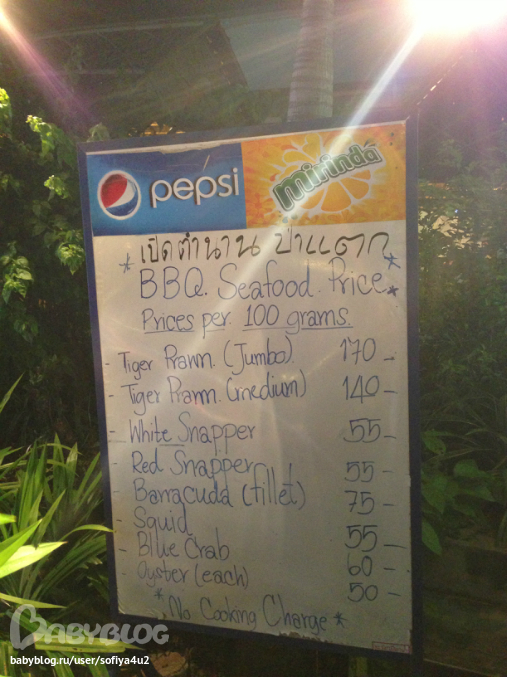 pepsi mirinda
เปิดตำนาน ป่าแตก
* BBQ. Seafood. Price *
Prices per 100 grams.
- Tiger Prawn. (Jumbo) 170 -
- Tiger Prawn. (medium) 140 -
- White Snapper 55 -
- Red Snapper 55 -
- Barracuda (fillet) 75 -
- Squid 55 -
- Blue Crab 60 -
- Oyster (each) 50 -
* No Cooking Charge *
BABYBLOG
babyblog.ru/user/sofiya4u2